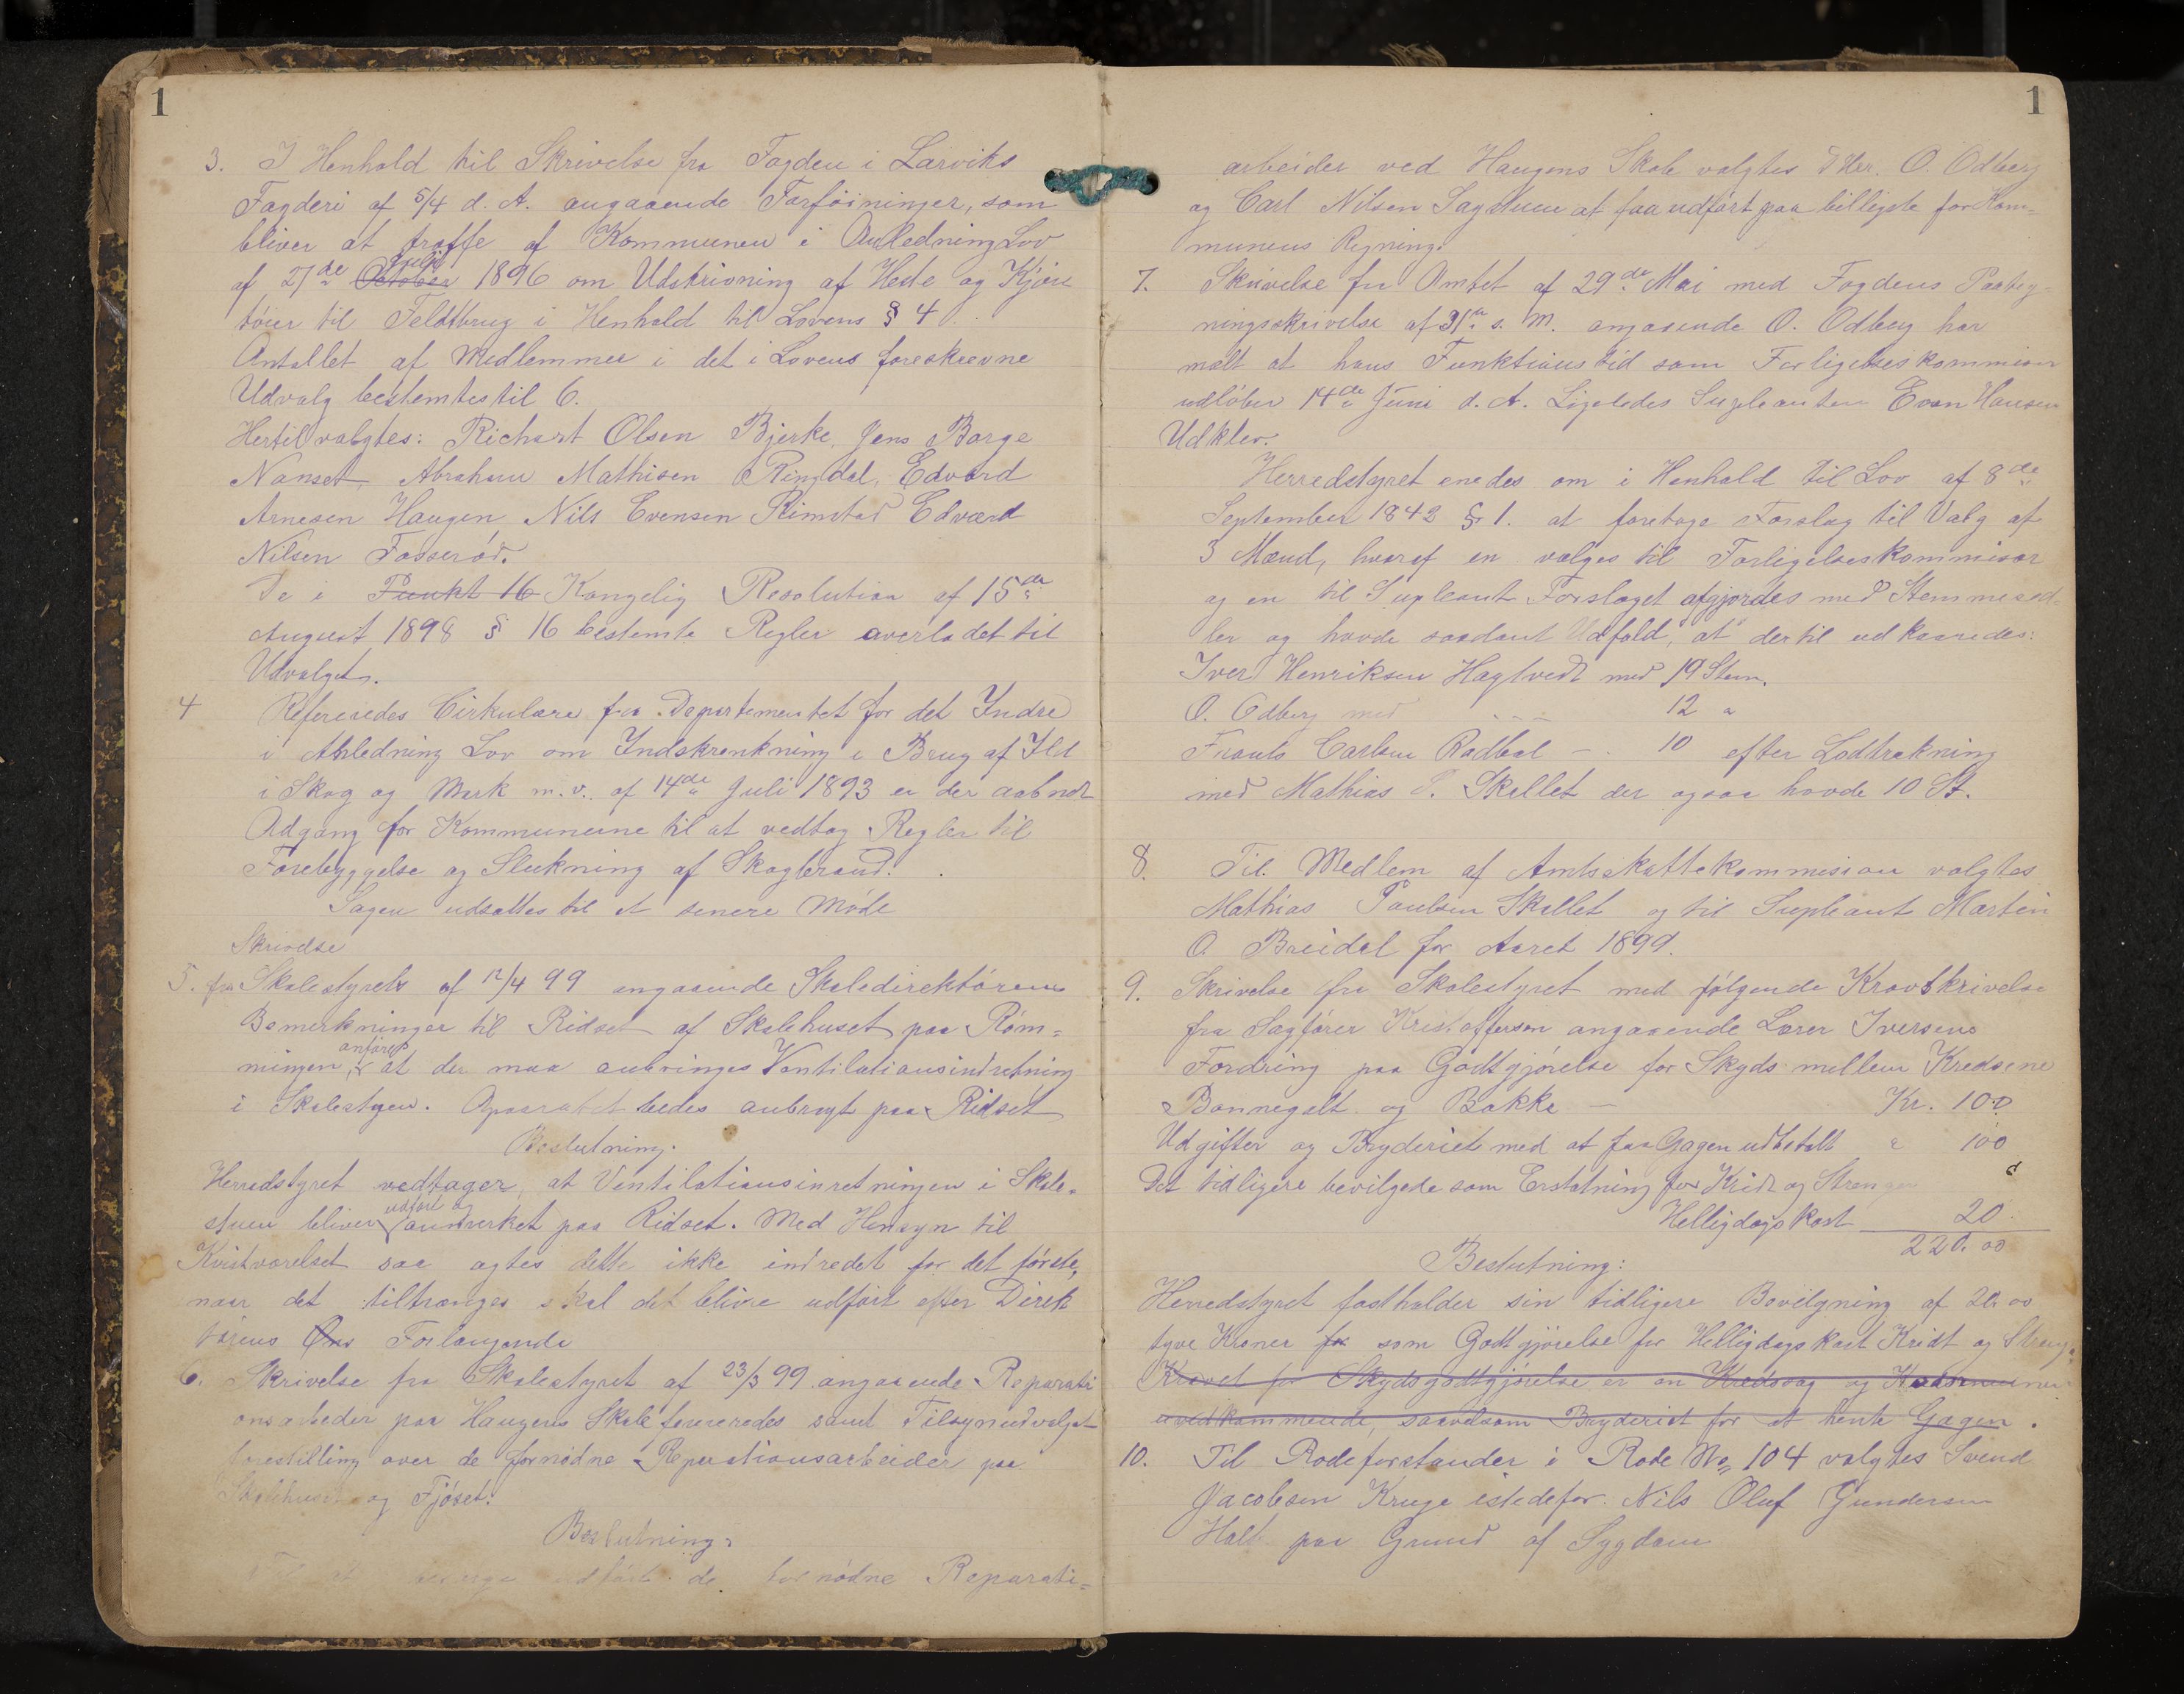 1
3. I Henhold til Skrivelse fra Fogden i Larviks
Fogderi af 5/4 d. A. angaaende Forføininger, som
bliver at træffe af Kommunen i Anledning Lov
af 27de October Juli 1896 om Udskrivning af Heste og Kjøre
tøier til Feldtbrug i Henhold til Lovens § 4.
Antallet af Medlemmer i det i Lovens foreskrevne
Udvalg bestemtes til 6.
Hertil valgtes: Richart Olsen Bjerke, Jens Borge
Nanset, Abraham Mathisen Ringdal, Edvard
Arnesen Haugen, Nils Evensen Rimstad Edvard
Nilsen Fosserød.
De i Punkt 16 Kongelig Resolution af 15de
August 1898 § 16 bestemte Regler overlodet til
Udvalget.
4 Refereredes Cirkulære fra Departementet for det Indre
i Anledning Lov om Indskrænkning i Brug af Ild
i Skog og Mark m.v. af 14de Juli 1893 er der aabnet
Adgang for Kommunerne til at vedtag Regler til
Forebyggelse og Slukning af Skogbrand.
Sagen udsattes til et senere Møde
Skrivelse
5. fra Skolestyrets af 12/4 99 angaaende Skoledirektørens
Bemerkninger til Ridset af Skolehuset paa Røm=
ningen, anføres at der maa anbringes Ventilationsindretning
i Skolestuen. Aparatet bedes anbragt paa Ridset
Beslutning.
Herredstyret vedtager, at Ventilationsinretningen i Skole=
stuen bliver udført og anmerket paa Ridset. Med Hensyn til
Kvistværelset saa agtes dette ikke indredet for det første,
naar det tiltrænges skal det blive udført efter Direk
tørens Øns Forlangende
6. Skrivelse fra Skolestyret af 23/3 99 angaaende Reparati
onsarbeder paa Haugens Skole refereredes samt Tilsynudvalget
forestilling over de fornødne Reparationsarbeider paa
Skolehuset og Fjøset.
Beslutning:
Til at udført de fornødne Reparati=
1
arbeider ved Haugens Skole valgtes D Hr. O. Odberg
og Carl Nilsen Sagstuen at faa udført paa billigste for Kom=
munens Regning.
7. Skrivelse fra Amtet af 29de Mai med Fogdens Paateg-
ningsskrivelse af 31te s. M. angaaende O. Odberg har
mælt at hans Funktionstid som Forligelseskommisær
udløber 14de Juni d. A. Ligeledes Supleanten Even Hansen
Udklev.
Herredstyret enedes om i Henhold til Lov af 8de
September 1842 § 1. at foretage Forslag til Valg af
3 Mænd, hvoraf en vælges til Forligelseskommisær
og en til Supleant Forslaget afgjordes med Stemmesed-
ler og havde saadant Udfald, at dertil udkaaredes:
Iver Henriksen Hagtvedt med 19 Stem.
O. Odberg med - - - 12 "
Frants Carlsen Rødbøl - 10 efter Lodtrækning
med Mathias P. Skallet der ogsaa havde 10 St.
8. Til Medlem af Amtsskattekommision valgtes
Mathias Paulsen Skallet og til Supleant Martin
O. Breidal for Aaret 1899.
9. Skrivelse fra Skolestyret med følgende Kravskrivelse
fra Sagfører Kristoffersen angaaende Lærer Iversens
Fordring paa Godtgjørelse for Skyds mellem Kredsene
Bonnegolt og Bakke - Kr. 100
Udgifter og Bryderiet med at faa Gagen udbetalt " 100
Det tidligere bevilgede som Erstatning for Kridt og Strenger
Helligdagskost 20
220.00
Beslutning:
Herredstyret fastholder sin tidligere Bevilgning af 20.00
tyve Kroner for som Godtgjørelse for Helligdagskost Kridt og Streng.
Kravet for Skydsgodtgjørelse er en Kredssag og
uvedkommende, saavelsom Bryderiet for at hente Gagen.
10. Til Rodeforstander i Rode No 104 valgtes Svend
Jacobsen Kruge istedefor Nils Oluf Gundersen
Holt paa Grund af Sygdom